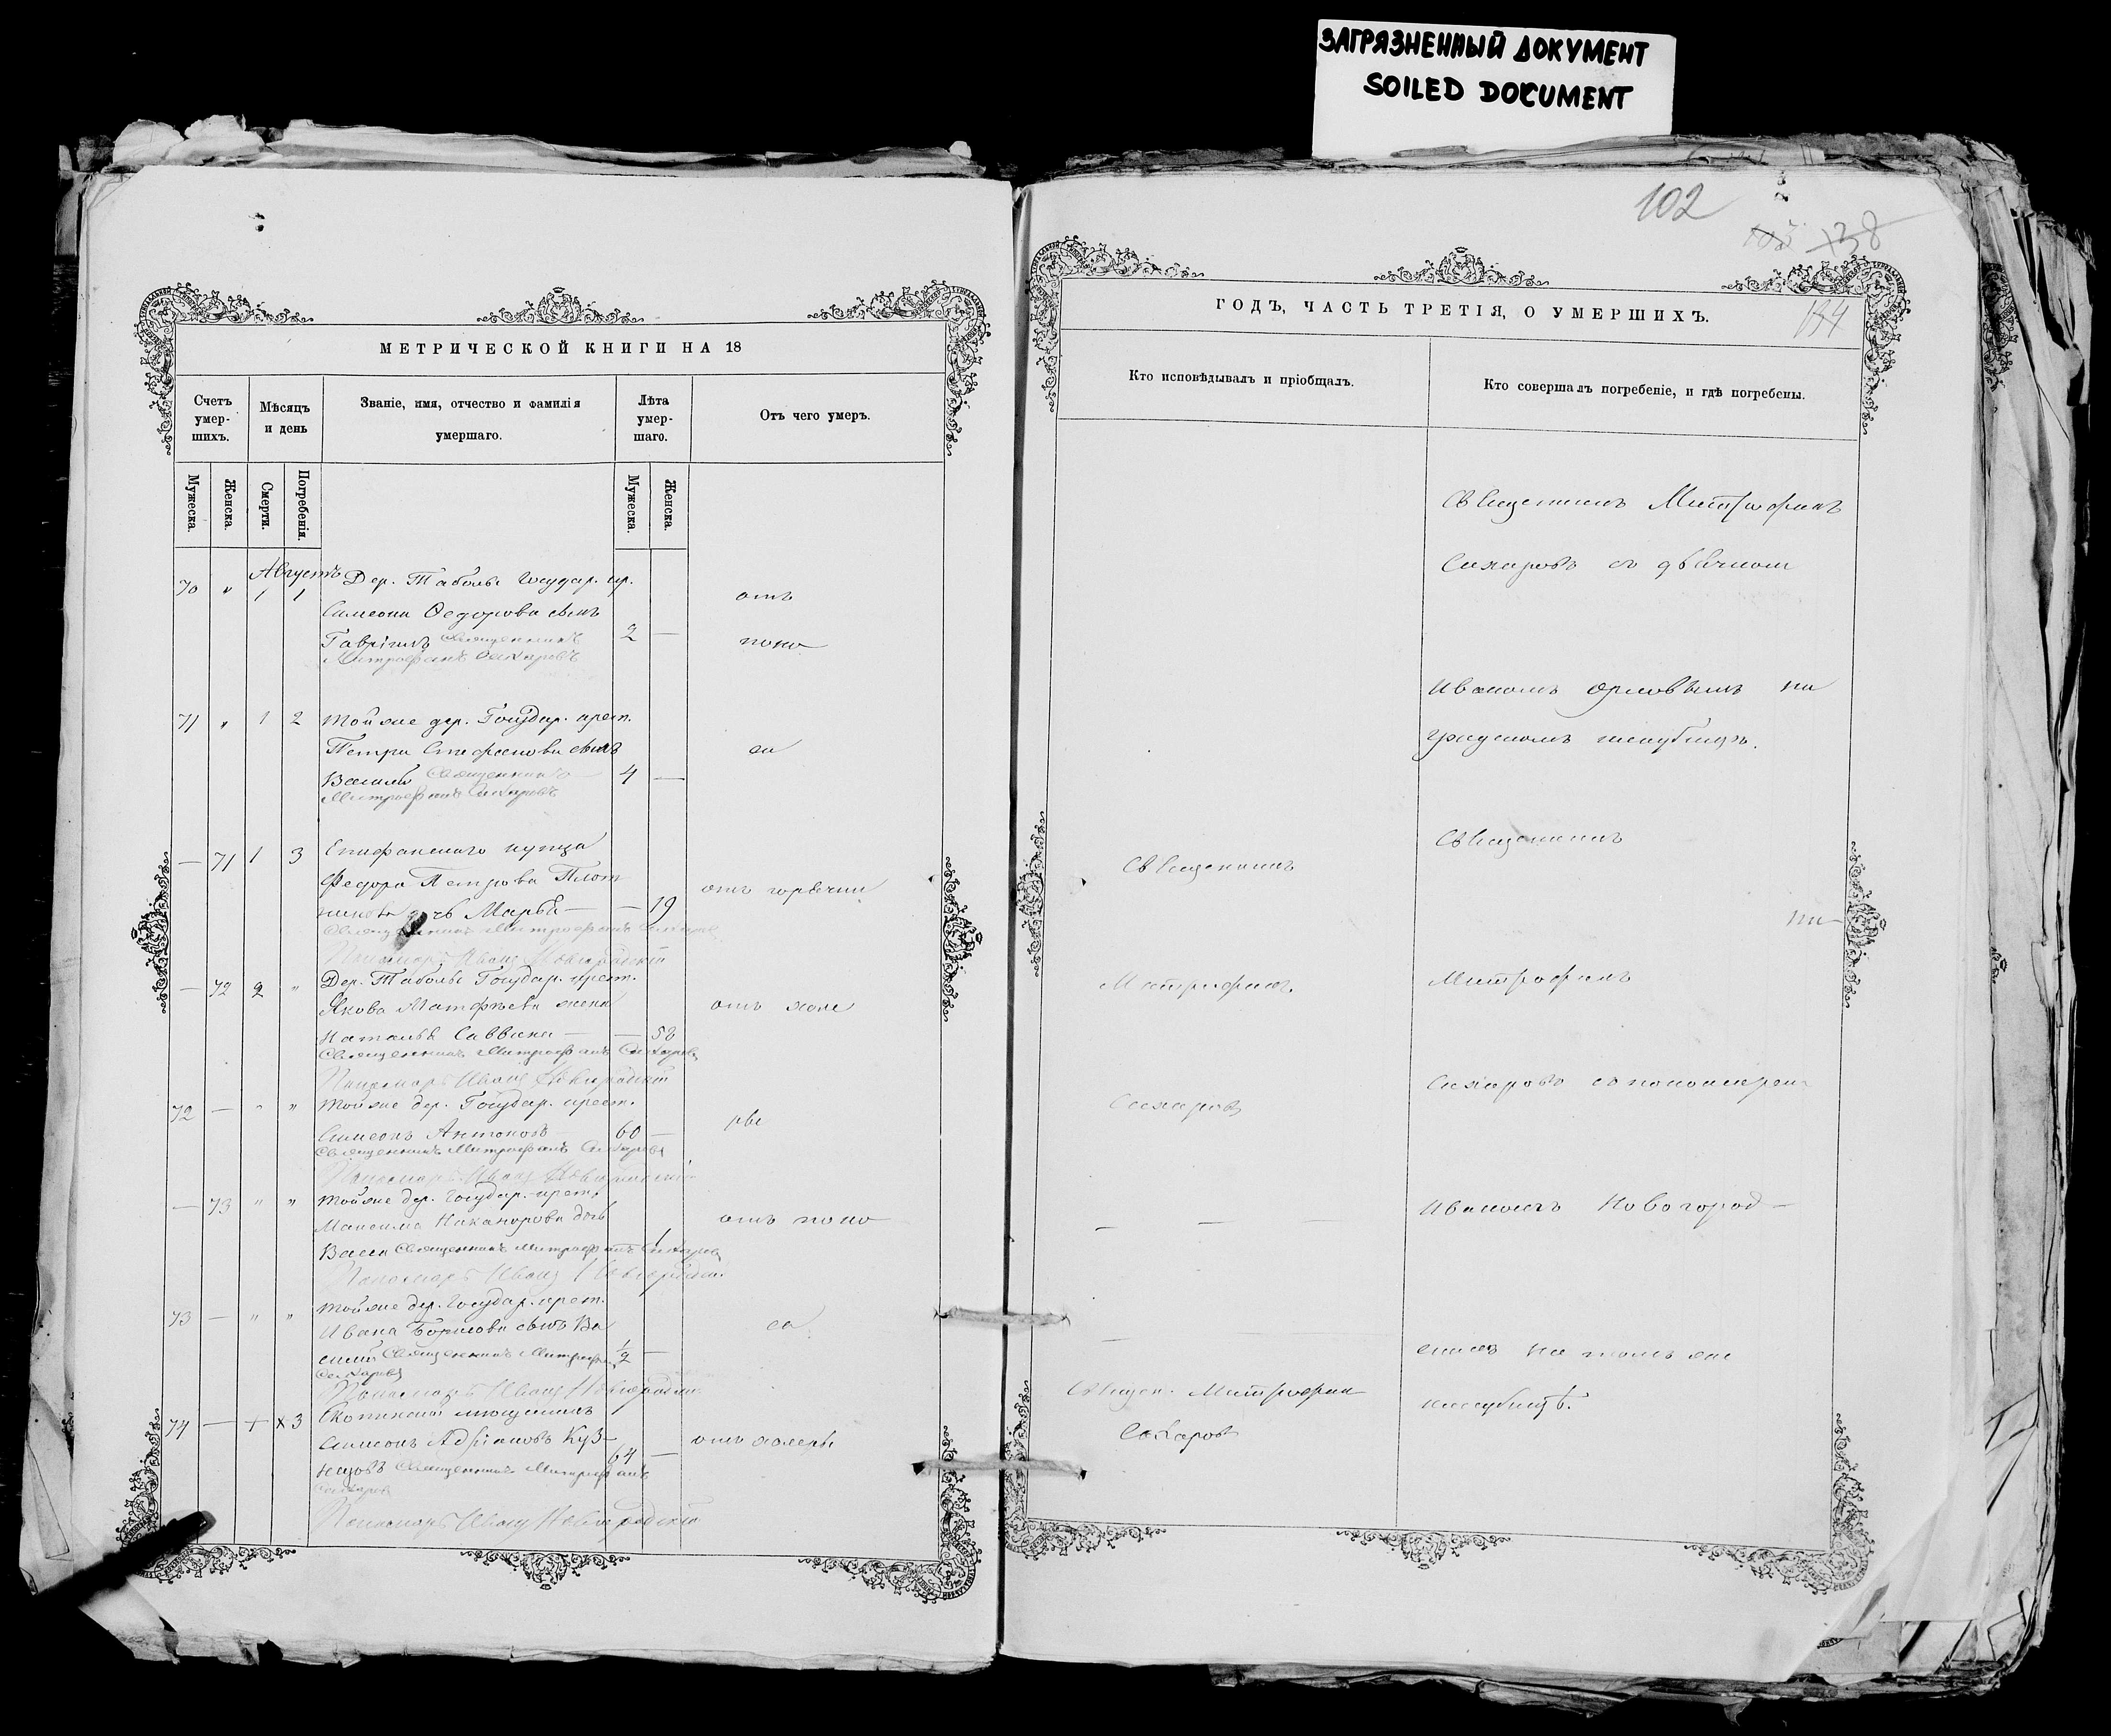 ЗАГРЯЗНЕННЫЙ ДОКУМЕНТ
SOILED DOCUMENT
МЕТРИЧЕСКОЙ КНИГИ НА 18
Счетъ умер-шихъ.
Мѣсяцъ и день
Званіе, имя, отчество и фамилія умершаго.
Лѣта умер-шаго.
Отъ чего умеръ.
Мужеска.
Женска.
Смерти.
Погребенія.
Мужеска.
Женска.
Августъ
70 " 1 1 Дер. Табола Государ. кр.
Симеона Федорова сынъ
Гавріилъ Священникъ 2 —
Митрофанъ Сахаровъ
отъ
поно
71 " 1 2 Той же дер. Государ. крест.
Петра Стефанова сынъ
Василій Священникъ 4 —
Митрофанъ Сахаровъ
са
— 71 1 3 Епифанскаго купца
Федора Петрова Плот
никова дочь Марья — — 19
отъ горячки
Священникъ Митрофанъ
Пономарь Иванъ Новгородскій
— 72 2 " Дер. Табола Государ. крест.
Якова Матфѣева жена
Наталья Саввина — — 58
отъ холе
Священникъ Митрофанъ Сахаровъ
Пономарь Иванъ Новгородскій
72 — " " Той же дер. Государ. крест.
Симеонъ Антоновъ 60 —
ры
Священникъ Митрофанъ Сахаровъ
Пономарь Иванъ Новгородскій
— 73 " " Той же дер. Государ. крест.
Максима Никанорова дочь
Васса Священникъ Митрофанъ Сахаровъ 1
отъ поно
Пономарь Иванъ Новгородскій
73 — " " Той же дер. Государ. крест.
Ивана Борисова сынъ Ва
силій Священникъ Митрофанъ 1/2 —
са
Сахаровъ
Пономарь Иванъ Новгородскій
74 — + × 3 Скопинскій мещанинъ
Симеонъ Адріановъ Куз-
нецовъ Священникъ Митрофанъ 64 —
отъ холеры
Сахаровъ
Пономарь Иванъ Новгородскій
102
138
134
ГОДЪ, ЧАСТЬ ТРЕТІЯ, О УМЕРШИХЪ.
Кто исповѣдывалъ и пріобщалъ.
Кто совершалъ погребеніе, и гдѣ погребены.
Священникъ Митрофанъ
Сахаровъ съ дьячкомъ
Иваномъ Орловымъ на
градскомъ кладбищѣ.
Священникъ
Митрофанъ
Сахаровъ
Священ. Митрофан
Сахаровъ
Священникъ
Митрофанъ
Сахаровъ съ пономарем
Иваномъ Новогород-
скимъ на томъ же
кладбищѣ.